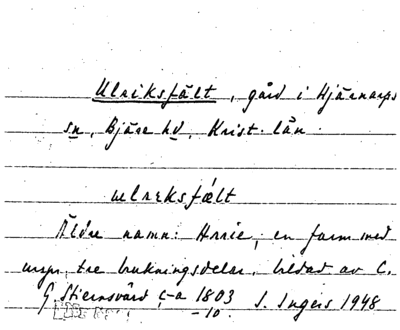 Ulriksfält, gård i Hjärnarps
sn, Bjäre hd, Krist. län.
ulreksfælt
Äldre namn: Hrrie, en farm med
urspr. tre brukningsdelar, bildad av C.
G. Stiernsvärd c-a 1803 S. Ingers 1948
-10